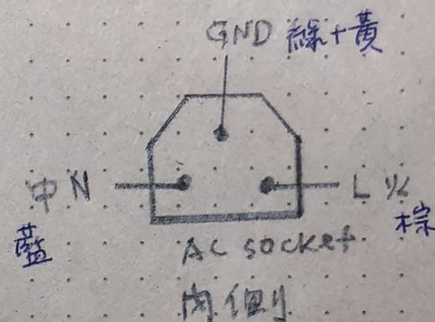 GND 綠+黃
中 N
L 火
藍
棕
AC socket
內側